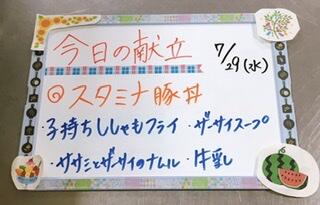 今日の献立
7/29(水)
◎スタミナ豚丼
・子持ちししゃもフライ ・ザーサイスープ
・ササミとザーサイのナムル ・牛乳